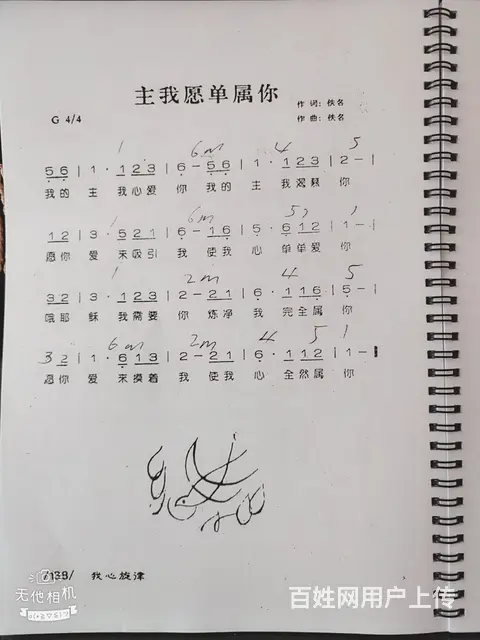 主我愿单属你
作词：佚名
G 4/4
作曲：佚名
1 6m 4 5
5 6 | 1 · 1 2 3 | 6 - 5 6 | 1 · 1 2 3 | 2 - |
我的 主 我心爱 你 我的 主 我渴慕 你
1 6m 5 1
1 2 | 3 · 5 2 1 | 6 - 1 6 | 5 · 6 1 2 | 1 - |
愿你 爱 来吸引 我 使我 心 单单爱 你
1 2m 4 5
3 2 | 3 · 1 2 3 4 | 2 - 2 1 | 6 · 1 1 6 | 5 - |
哦耶 稣 我需要 你 炼净 我 完全属 你
6m 2m 4 5 1
3 2 | 1 · 6 1 3 | 2 - 2 1 | 6 · 1 1 2 | 1 - |
愿你 爱 来摸着 我 使我 心 全然属 你
/138/ 我心旋律
无他相机
百姓网用户上传